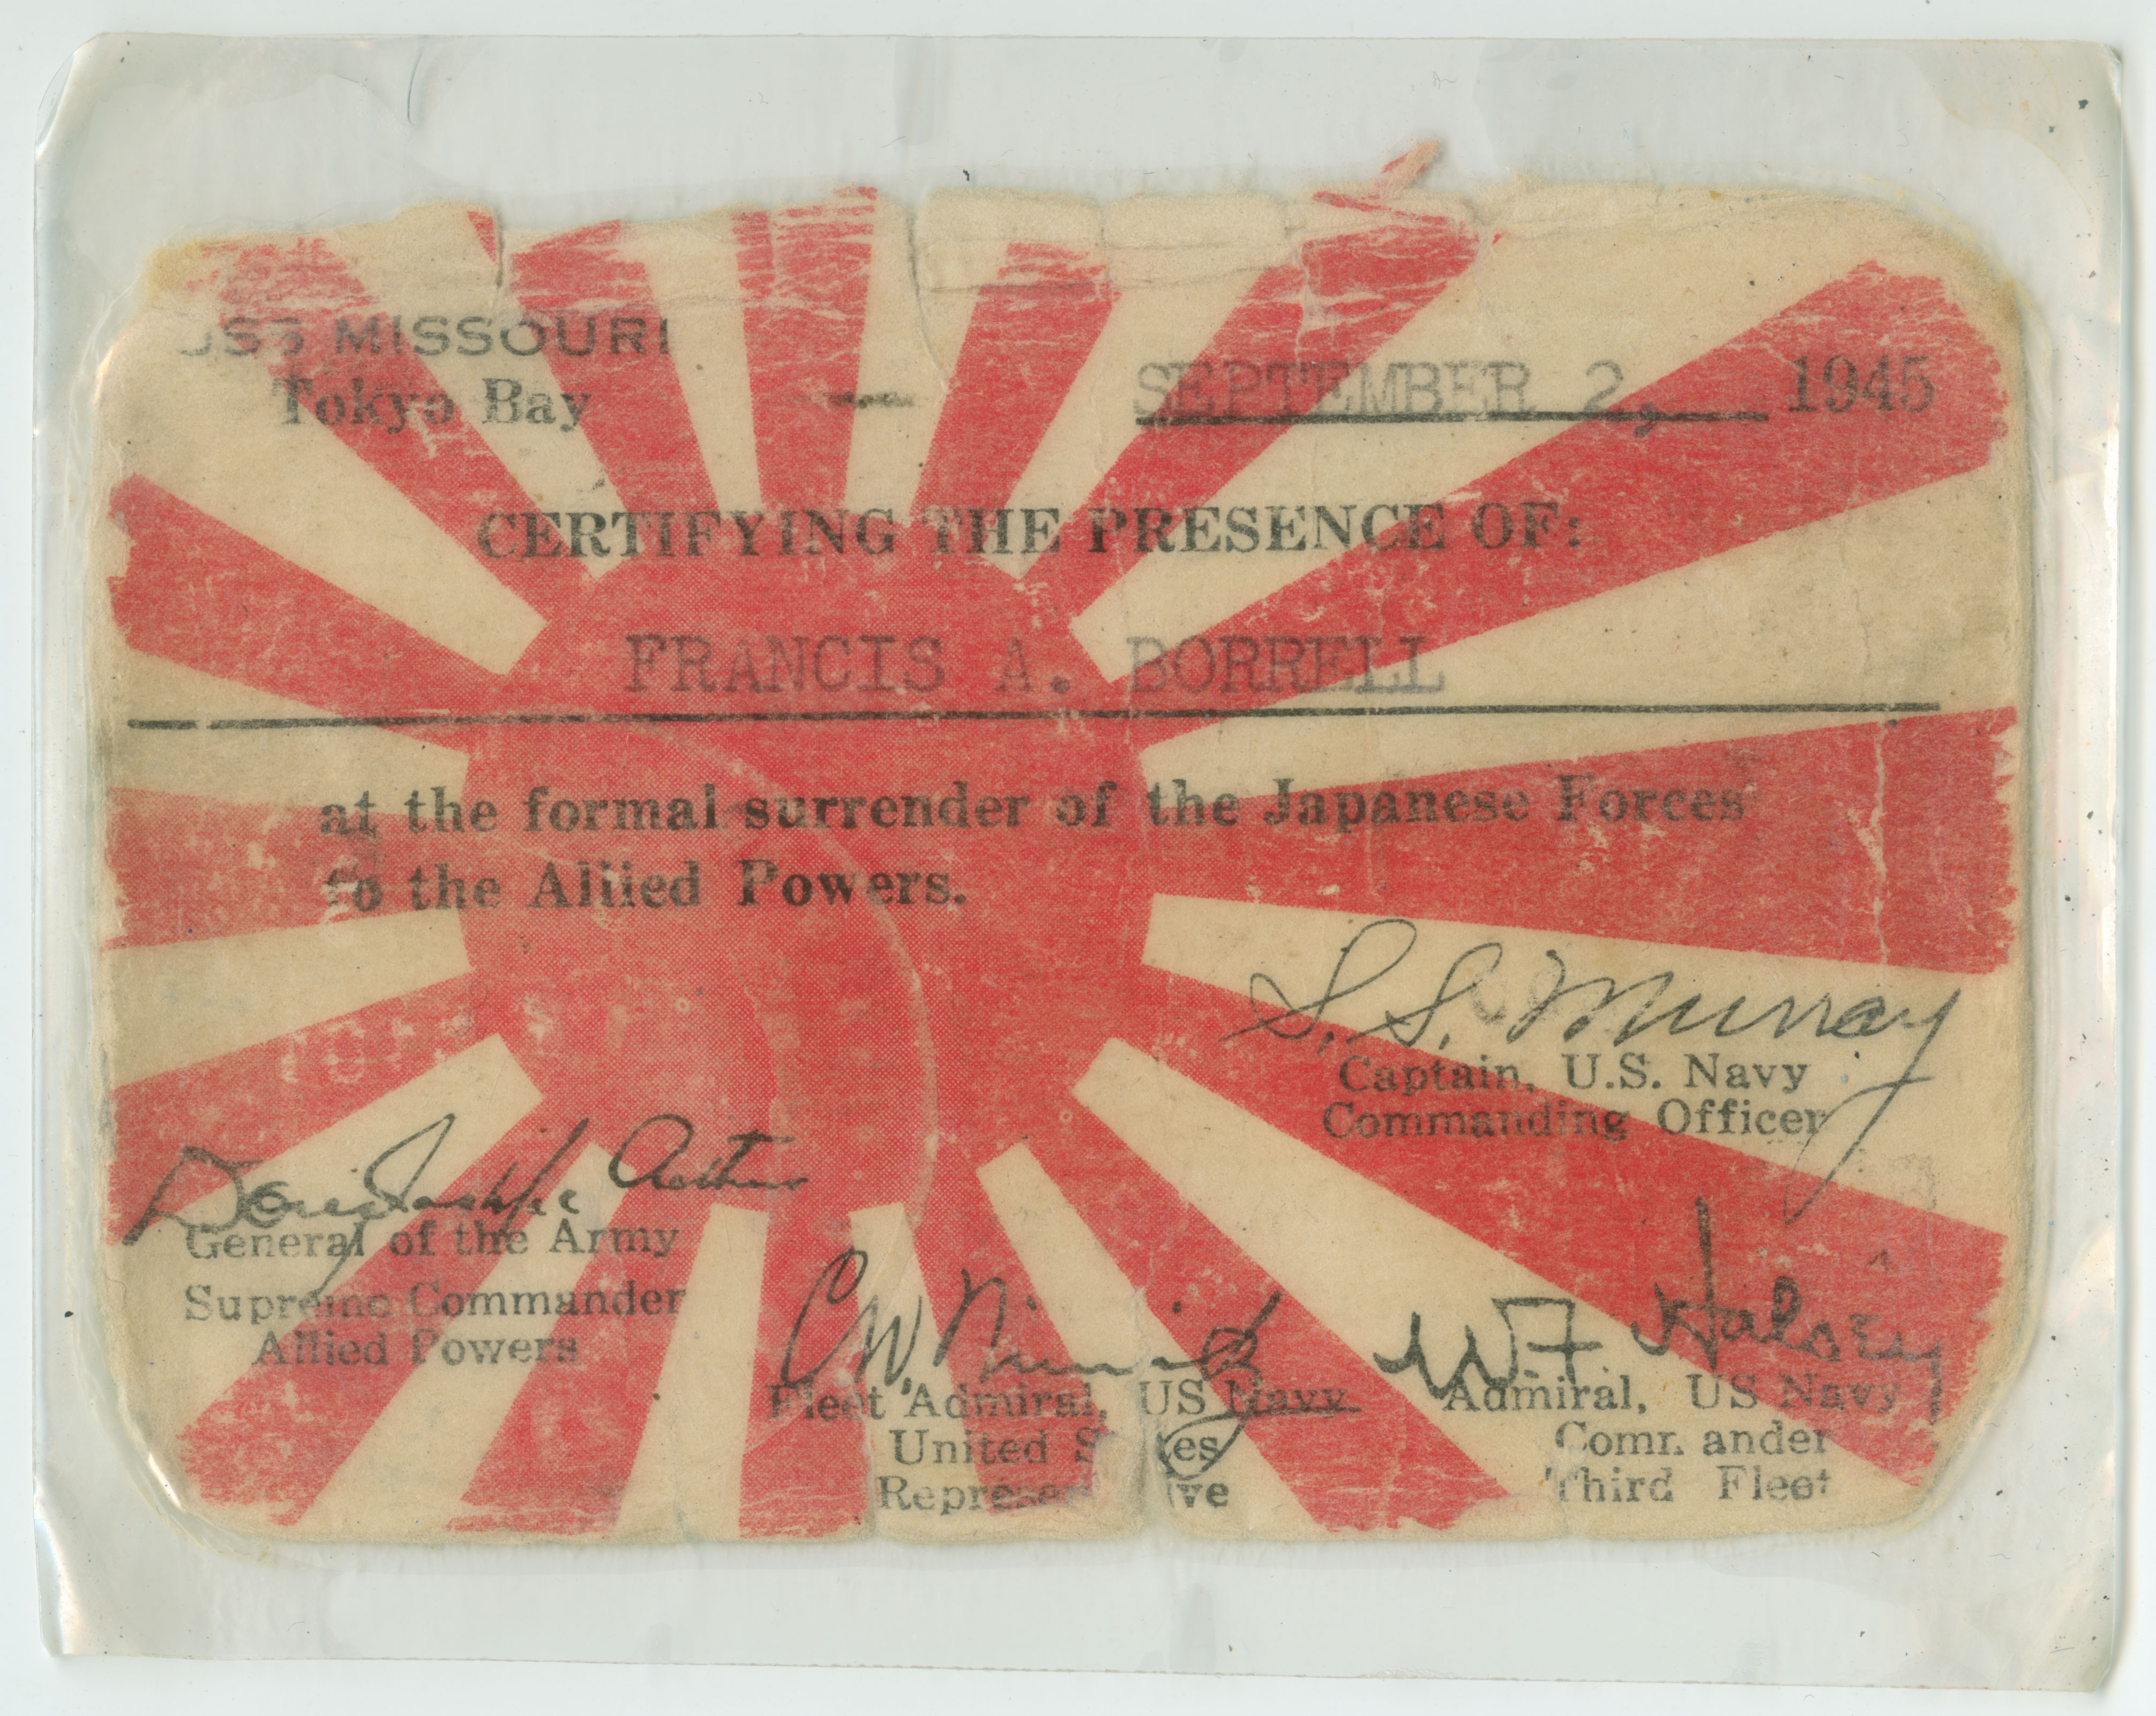 USS MISSOURI
Tokyo Bay — SEPTEMBER 2, 1945
CERTIFYING THE PRESENCE OF:
FRANCIS A. BORRELL
at the formal surrender of the Japanese Forces
to the Allied Powers.
S. S. Murray
Captain, U.S. Navy
Commanding Officer
Douglas MacArthur
General of the Army
Supreme Commander
Allied Powers
C.W. Nimitz
Fleet Admiral, US Navy
United States
Representative
W.F. Halsey
Admiral, US Navy
Commander
Third Fleet